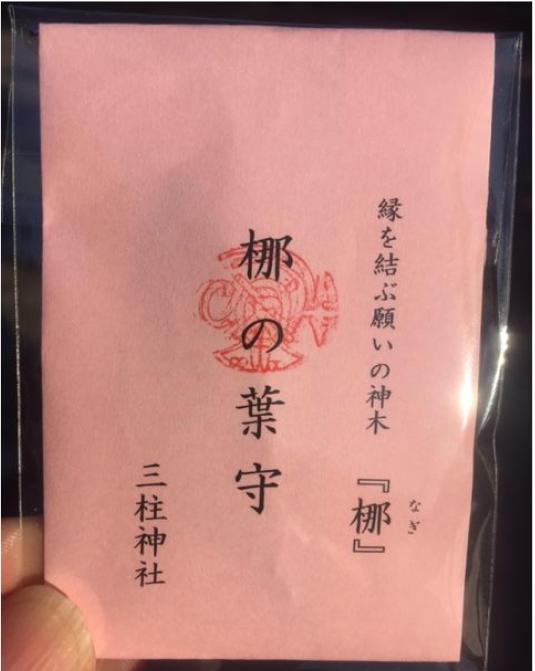 縁を結ぶ願いの神木『梛』
なぎ
梛の葉守
三柱神社